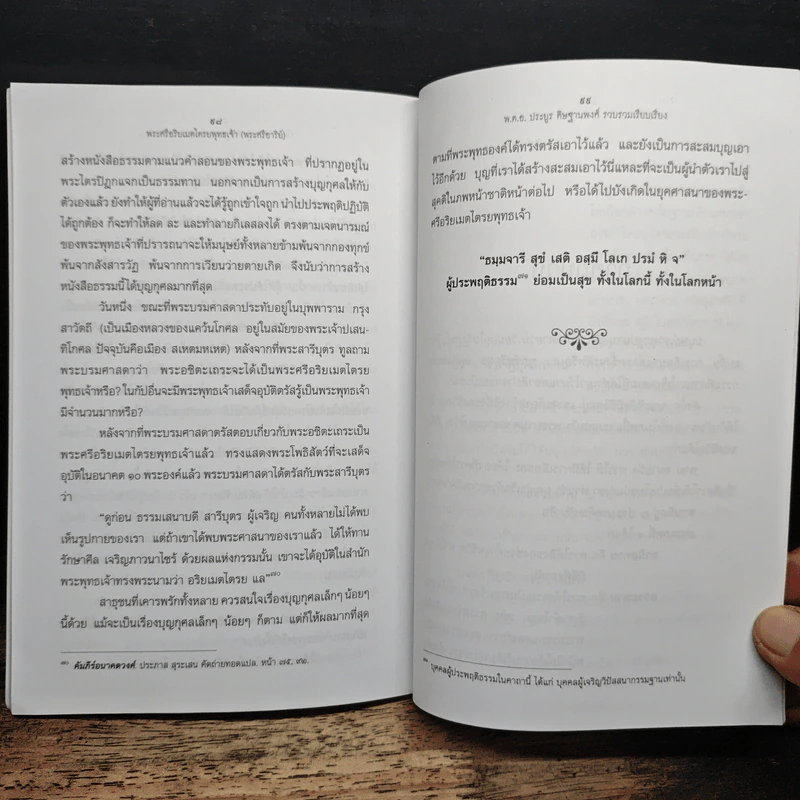 ๙๘
พระศรีอริยเมตไตรยพุทธเจ้า (พระศรีอาริย์)
สร้างหนังสือธรรมตามแนวคำสอนของพระพุทธเจ้า ที่ปรากฏอยู่ใน
พระไตรปิฎกแจกเป็นธรรมทาน นอกจากเป็นการสร้างบุญกุศลให้กับ
ตัวเองแล้ว ยังทำให้ผู้ที่อ่านแล้วจะได้รู้ถูกเข้าใจถูก นำไปประพฤติปฏิบัติ
ได้ถูกต้อง ก็จะทำให้ลด ละ และทำลายกิเลสลงได้ ตรงตามเจตนารมณ์
ของพระพุทธเจ้าที่ปรารถนาจะให้มนุษย์ทั้งหลายข้ามพ้นจากกองทุกข์
พ้นจากสังสารวัฏ พ้นจากการเวียนว่ายตายเกิด จึงนับว่าการสร้าง
หนังสือธรรมนี้ได้บุญกุศลมากที่สุด
วันหนึ่ง ขณะที่พระบรมศาสดาประทับอยู่ในบุพพาราม กรุง
สาวัตถี (เป็นเมืองหลวงของแคว้นโกศล อยู่ในสมัยของพระเจ้าปเสน-
ทิโกศล ปัจจุบันคือเมือง สเหตมหเหต) หลังจากที่พระสารีบุตร ทูลถาม
พระบรมศาสดาว่า พระอชิตะเถระจะได้เป็นพระศรีอริยเมตไตรย
พุทธเจ้าหรือ? ในกัปอื่นจะมีพระพุทธเจ้าเสด็จอุบัติตรัสรู้เป็นพระพุทธเจ้า
มีจำนวนมากหรือ?
หลังจากที่พระบรมศาสดาตรัสตอบเกี่ยวกับพระอชิตะเถระเป็น
พระศรีอริยเมตไตรยพุทธเจ้าแล้ว ทรงแสดงพระโพธิสัตว์ที่จะเสด็จ
อุบัติในอนาคต ๑๐ พระองค์แล้ว พระบรมศาสดาได้ตรัสกับพระสารีบุตร
ว่า
“ดูก่อน ธรรมเสนาบดี สารีบุตร ผู้เจริญ คนทั้งหลายไม่ได้พบ
เห็นรูปกายของเรา แต่ถ้าเขาได้พบพระศาสนาของเราแล้ว ได้ให้ทาน
รักษาศีล เจริญภาวนาไซร้ ด้วยผลแห่งกรรมนั้น เขาจะได้อุบัติในสำนัก
พระพุทธเจ้าทรงพระนามว่า อริยเมตไตรย แล”๗๐
สาธุชนที่เคารพรักทั้งหลาย ควรสนใจเรื่องบุญกุศลเล็กๆ น้อยๆ
นี้ด้วย แม้จะเป็นเรื่องบุญกุศลเล็กๆ น้อยๆ ก็ตาม แต่ก็ให้ผลมากที่สุด
๗๐ คัมภีร์อนาคตวงศ์. ประภาส สุระเสน คัดถ่ายทอดแปล. หน้า ๗๕, ๙๒.
๙๙
พ.ต.อ. ประยูร ดิษฐานพงศ์ รวบรวมเรียบเรียง
ตามที่พระพุทธองค์ได้ทรงตรัสเอาไว้แล้ว และยังเป็นการสะสมบุญเอา
ไว้อีกด้วย บุญที่เราได้สร้างสะสมเอาไว้นี่แหละที่จะเป็นผู้นำตัวเราไปสู่
สุคติในภพหน้าชาติหน้าต่อไป หรือได้ไปบังเกิดในยุคศาสนาของพระ-
ศรีอริยเมตไตรยพุทธเจ้า
“ธมฺมจารี สุขํ เสติ อสฺมึ โลเก ปรมฺ หิ จ”
ผู้ประพฤติธรรม๗๑ ย่อมเป็นสุข ทั้งในโลกนี้ ทั้งในโลกหน้า
๗๑ บุคคลผู้ประพฤติธรรมในคาถานี้ ได้แก่ บุคคลผู้เจริญวิปัสสนากรรมฐานเท่านั้น